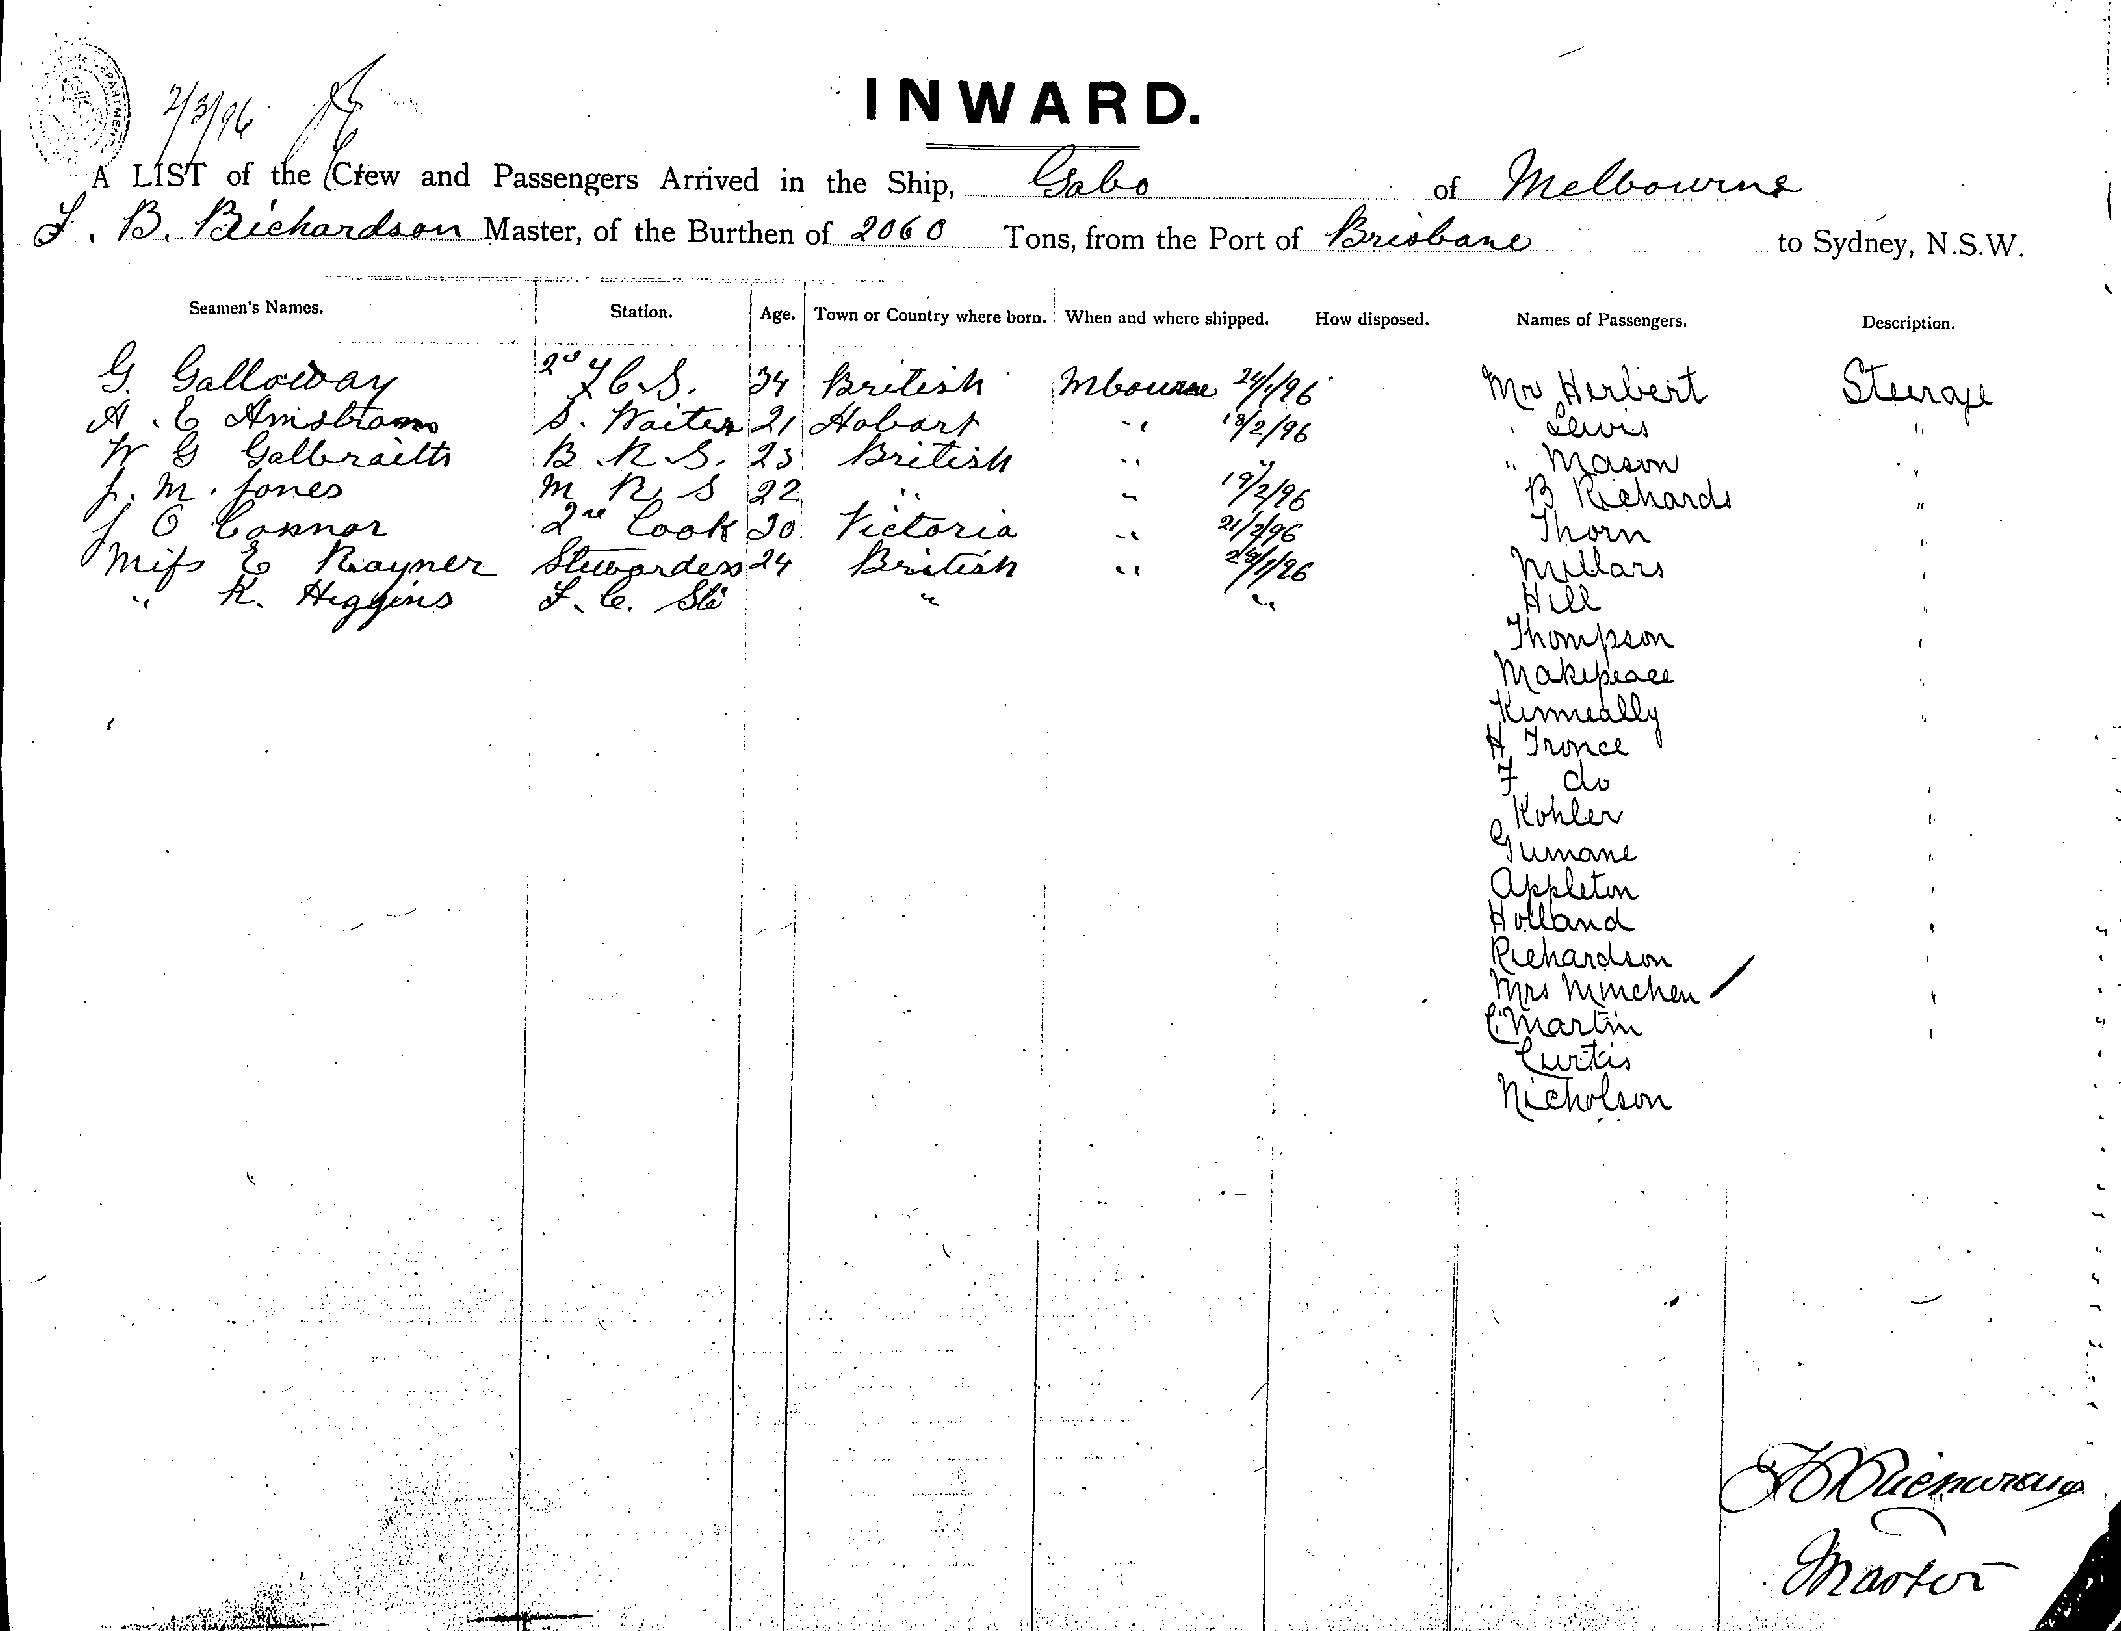 2/3/96
INWARD.
A LIST of the Crew and Passengers Arrived in the Ship, Gabo of Melbourne
F. B. Richardson Master, of the Burthen of 2060 Tons, from the Port of Brisbane to Sydney, N.S.W.
Seamen's Names. Station. Age. Town or Country where born. When and where shipped. How disposed. Names of Passengers. Description.
G. Galloway 2nd F.C.S. 34 British Mbourne 24/1/96 Mr Herbert Steerage
A. E S. Waiter 21 Hobart " /2/96 Lewis "
W G Galbraith B. R. S. 23 British " " " Mason "
J. M. Jones M R S 22 " " 19/2/96 B Richards "
J O Connor 2nd Cook 30 Victoria " 21/2/96 Thorn "
Miss E Rayner Stewardess 24 British " /1/96 Millars "
" K. Higgins F. C. Sts " " Hill "
Thompson "
Makepeace "
Kinneally "
H Tronce
F do "
Kohler "
Gumane "
Appleton "
Holland "
Richardson "
Mrs Minchen "
C. Martin "
Curtis
Nicholson
Master